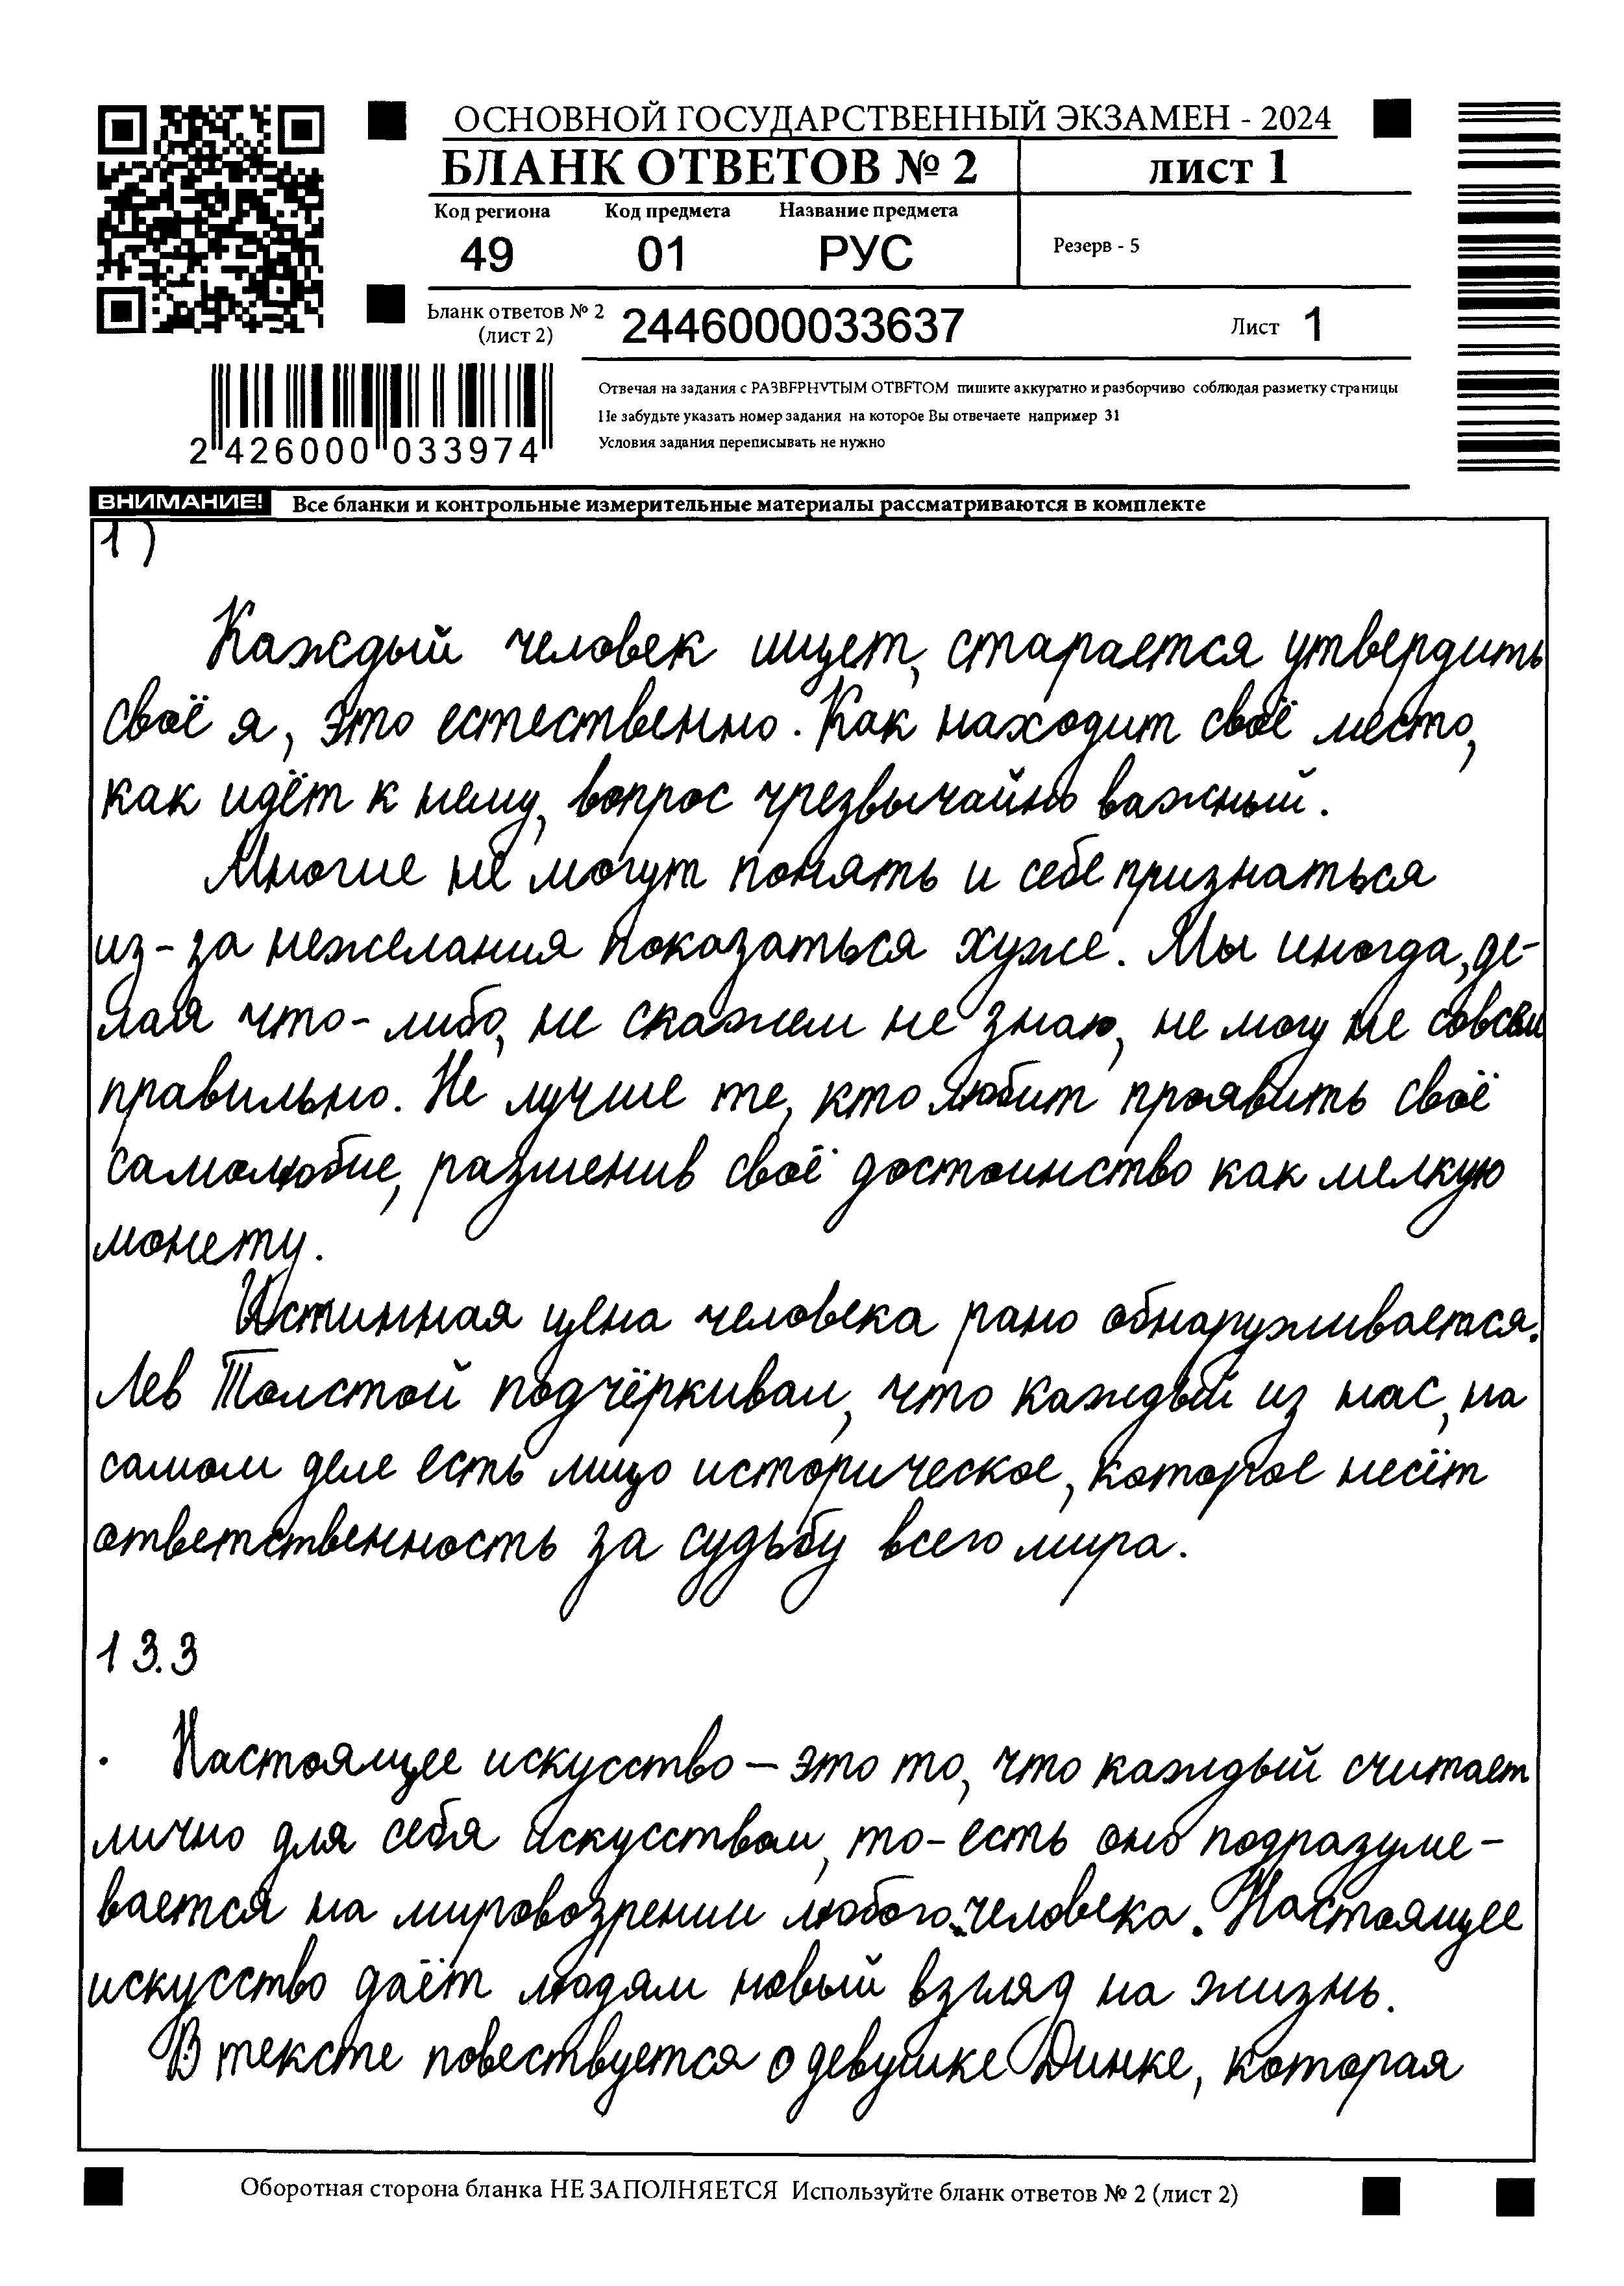 ОСНОВНОЙ ГОСУДАРСТВЕННЫЙ ЭКЗАМЕН - 2024
БЛАНК ОТВЕТОВ № 2
лист 1
Код региона Код предмета Название предмета
49 01 РУС
Резерв - 5
Бланк ответов № 2
(лист 2)
2446000033637
Лист 1
Отвечая на задания с РАЗВЕРНУТЫМ ОТВЕТОМ пишите аккуратно и разборчиво соблюдая разметку страницы
Не забудьте указать номер задания на которое Вы отвечаете например 31
Условия задания переписывать не нужно
2 426000 033974
ВНИМАНИЕ! Все бланки и контрольные измерительные материалы рассматриваются в комплекте
1)
Каждый человек ищет, старается утвердить
своё я, это естественно. Как находит своё место,
как идёт к нему, вопрос чрезвычайно важный.
Многие не могут понять и себе признаться
из-за нежелания показаться хуже. Мы иногда, де-
лая что-либо, не скажем не знаю, не могу не совсем
правильно. Не лучше те, кто любит проявить своё
самолюбие, разменив своё достоинство как мелкую
монету.
Истинная цена человека рано обнаруживается.
Лев Толстой подчёркивал, что каждый из нас, на
самом деле есть лицо историческое, которое несёт
ответственность за судьбу всего мира.
13.3
. Настоящее искусство – это то, что каждый считает
лично для себя искусством, то-есть оно подразуме-
вается на мировозрении любого человека. Настоящее
искусство даёт людям новый взгляд на жизнь.
В тексте повествуется о девушке Динке, которая
Оборотная сторона бланка НЕ ЗАПОЛНЯЕТСЯ Используйте бланк ответов № 2 (лист 2)